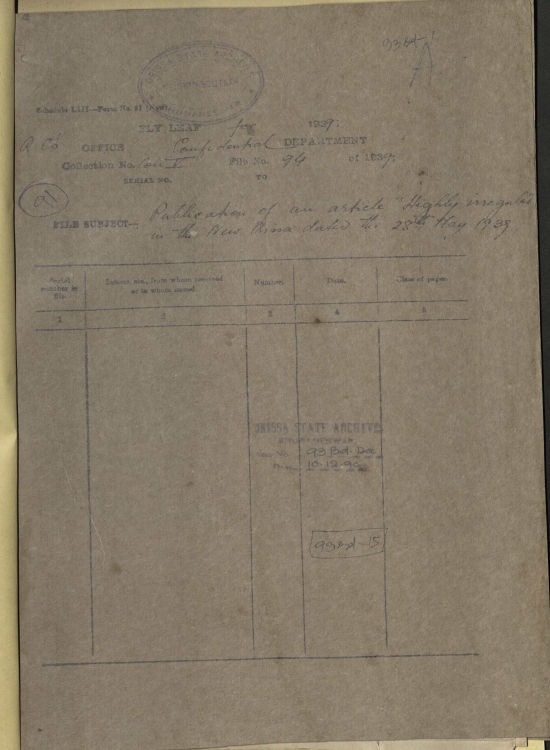 ORISSA STATE ARCHIVES
Schedule LIII—Form No. 21
FLY LEAF for 1939.
OFFICE Confidential DEPARTMENT
Collection No. Con I File No. 94 of 1939.
SERIAL NO. TO
FILE SUBJECT— Publication of an article "Highly irregular
in the New Orissa dated the 28th May 1939
Serial number in file
Letters etc., from whom received or to whom issued
Number.
Date.
Class of paper.
1 2 3 4 5
ORISSA STATE ARCHIVES
BHUBANESWAR
10-12-90